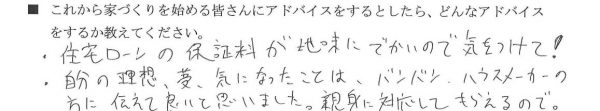 ■ これから家づくりを始める皆さんにアドバイスをするとしたら、どんなアドバイス
をするか教えてください。
・住宅ローンの保証料が地味にでかいので気をつけて!
・自分の理想、夢、気になったことは、バンバン、ハウスメーカーの
方に伝えて良いと思いました。親身に対応してもらえるので。